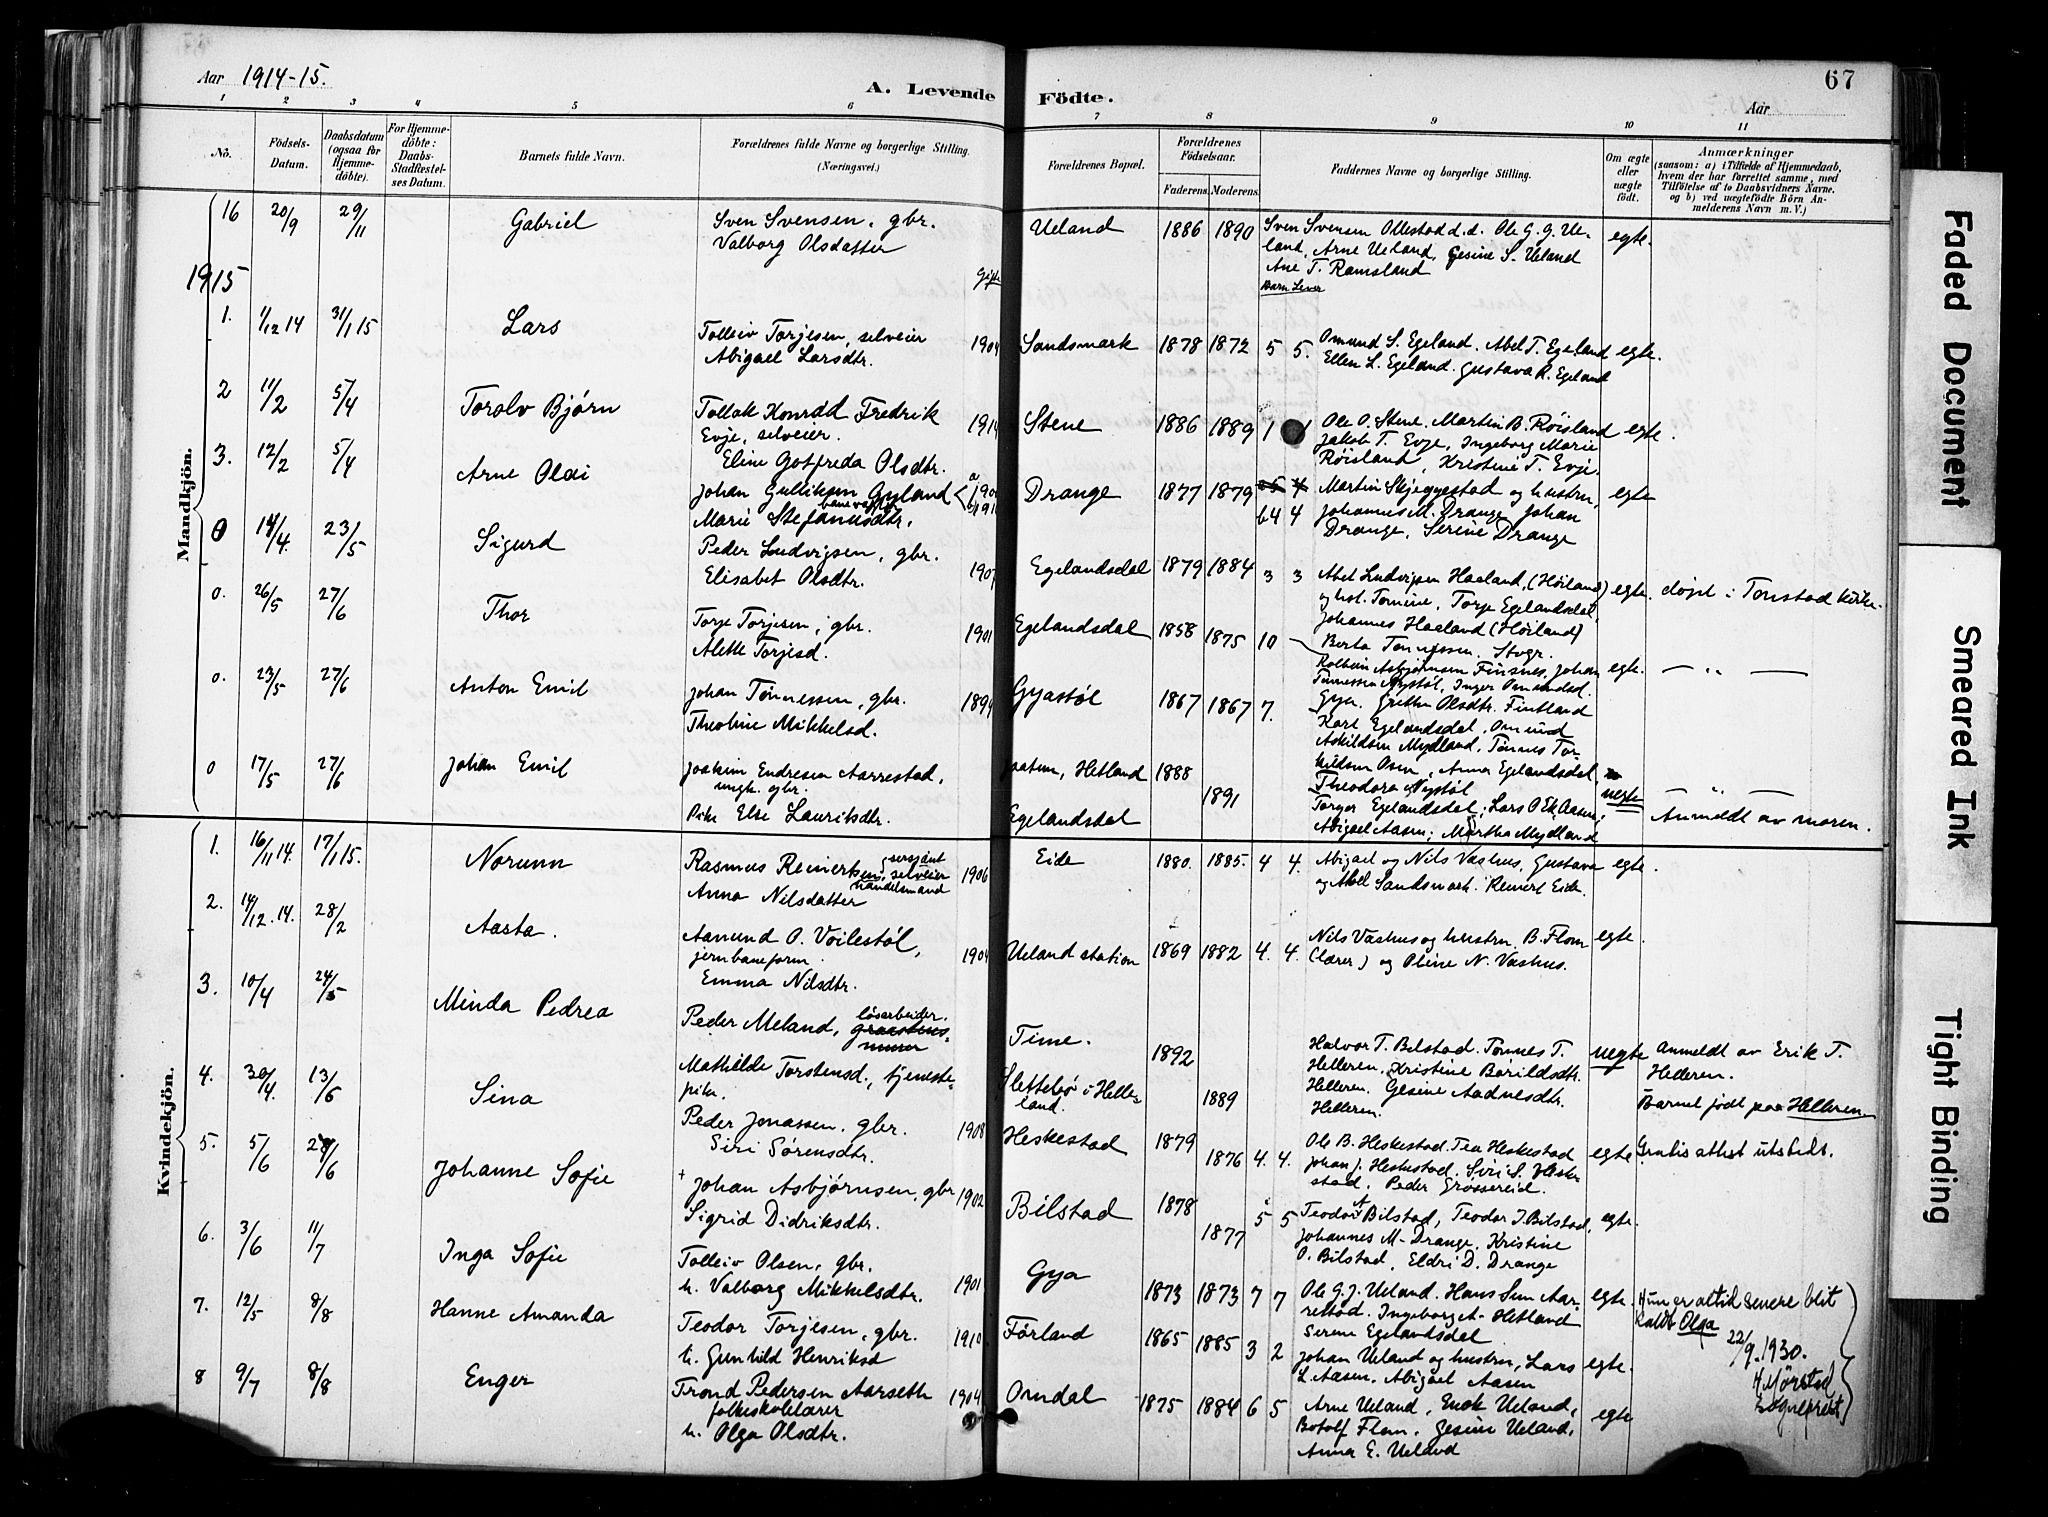 Aar 1914-15.
A. Levende Födte.
Aar
67
1 2 3 4 5 6 7 8 9 10 11
No.
Födsels-Datum.
Daabsdatum (ogsaa for Hjemme-döbte).
For Hjemme-döbte: Daabs-Stadfæstel-ses Datum.
Barnets fulde Navn.
Forældrenes fulde Navne og borgerlige Stilling. (Næringsvei.)
Forældrenes Bopæl.
Forældrenes Födselsaar.
Faderens. Moderens.
Faddernes Navne og borgerlige Stilling.
Om ægte eller uægte födt.
Anmærkninger
(saasom: a) i Tilfælde af Hjemmedaab, hvem der har forrettet samme, med Tilföielse af to Daabsvidners Navne, og b) ved uægtefödte Börn An-melderens Navn m. V.)
Mandkjön.
16 20/9 29/11 Gabriel Sven Svensen, gbr. Ueland 1886 1890 Sven Svensen Ollestad d.d. Ole G. G. Ue- egte.
Valborg Olsdatter land, Arne Ueland, Gesine S. Ueland
Ane T. Ramsland
1915 Gifte Barn Lever
1. 1/12 14 31/1 15 Lars Tolleiv Torjesen, selveier 1904 Sandsmark 1878 1872 5 5. Omund S. Egeland. Abel T. Egeland egte.
Abigael Larsdtr. Ellen L. Egeland. Gustava R. Egeland
2 11/2 5/4 Torolv Bjørn Tollak Konrad Fredrik 1914 Stene 1886 1889 1 1 Ole O. Stene. Martin B. Røisland egte.
Evje, selveier. Jakob T. Evje, Ingeborg Marie
Eline Gotfreda Olsdtr. Røisland, Kristine T. Evje.
3. 12/2 5/4 Arne Olai Johan Gulliksen Gyland Drange 1877 1879 Martin Skjeggestad og hustru, egte
banevogter b4 4 Johannes M. Drange, Johan
Marie Stefanusdtr. Drange, Serine Drange
0 14/4. 23/5 Sigurd Peder Ludvigsen, gbr. 1907 Egelandsdal 1879 1884 3 3 Abel Ludvigsen Haaland, (Høiland) egte. døpt i Tonstad kirke.
Elisabet Olsdtr. og hst. Tomine, Torje Egelandsdal,
Johannes Haaland (Høiland)
0. 26/5 27/6 Thor Torje Torjesen, gbr. 1901 Egelandsdal 1858 1875 10 Berta Tønnessen, Stvgr. egte. — „ —
Alette Torjesd. Asbjørnsen Finsnes, Johan
0. 23/5 27/6 Anton Emil Johan Tønnessen, gbr. 1894 Gyastøl 1867 1867 7. Gya. Grethe Olsdtr. Fintland
Theoline Mikkelsd. Karl Egelandsdal, Omund
Askildsen Mydland, Tønnes Tor-
0 17/5 27/6 Johan Emil Joakim Endresen Aarrestad, Hetland 1888 kildsen Osen, Anna Egelandsdal, uegte — „ —
ungk. gbr. 1891 Theodora Nystøl
Pike Else Lauritsdtr. Egelandsdal Torger Egelandsdal, Lars O. Ek Aasen, Anmeldt av moren.
Abigael Aasen, Martha Mydland
Kvindekjön.
1. 16/11 14. 17/1 15. Norunn Rasmus Reinertsen, sersjant selveier 1906 Eide 1880. 1885. 4 4. Abigael og Nils Vashus, Gustava egte.
handelsmand
Anna Nilsdatter og Abel Sandsmark. Reinert Eide
2. 14/12. 14. 28/2 Aasta. Aanund O. Voilestøl, 1904 Ueland station 1869 1882 4. 4. Nils Vashus og hustru, B. Flom egte.
jernbaneform. (lærer) og Oline N. Vashus.
Emma Nilsdtr.
3. 10/4 24/5 Minda Pedrea Peder Meland, løsarbeider. Time. 1892 Halvor T. Bilstad. Tønnes T. uegte Anmeldt av Erik T.
Mathilde Torstensd., tjeneste- Slettebø i Helle- 1889 Helleren, Kristine Barildsdtr. Helleren.
pike. land. Helleren. Gesine Aadnesdtr. Barnet født paa Helleren
Helleren.
4. 30/4. 13/6 Sina Peder Jonassen, gbr. 1908 Heskestad 1879 1876 4. 4. Ole B. Heskestad. Tea Heskestad egte Gratis attest utstedt.
Siri Sørensdtr. Johan J. Heskestad, Siri S. Heske-
stad, Peder Grøssereid.
5. 5/6 28/6 Johanne Sofie + Johan Asbjørnsen, gbr 1902 Bilstad 1878 1877 5 5 Teodor A Bilstad, Teodor J. Bilstad, egte.
Sigrid Didriksdtr. Johannes M. Drange, Kristine
O. Bilstad, Eldri D. Drange
6. 3/6 11/7 Inga Sofie Tolleiv Olsen, gbr. 1901 Gya 1873 1873 7 7 Ole G. J. Ueland. Hans Sem Aar- egte. Hun er altid senere blit
h. Valborg Mikkelsdtr. restad. Ingeborg A. Hetland kaldt Olga
Serine Egelandsdal 22/9. 1930.
7. 12/5 8/8 Hanne Amanda Teodor Torjesen, gbr. 1910 Førland 1865 1885 3 2 Johan Ueland og hustru, Lars egte. H. Mørstad
h. Gunhild Henriksd L. Aasen, Abigael Aasen Sogneprest
8 9/7 8/8 Enger Trond Pedersen Aarseth 1904 Omdal 1875 1884 6 5 Arne Ueland, Enok Ueland, egte
folkeskolelærer Botolf Flom, Gesine Ueland,
h. Olga Olsdtr. Anna E. Ueland
Faded Document
Smeared Ink
Tight Binding